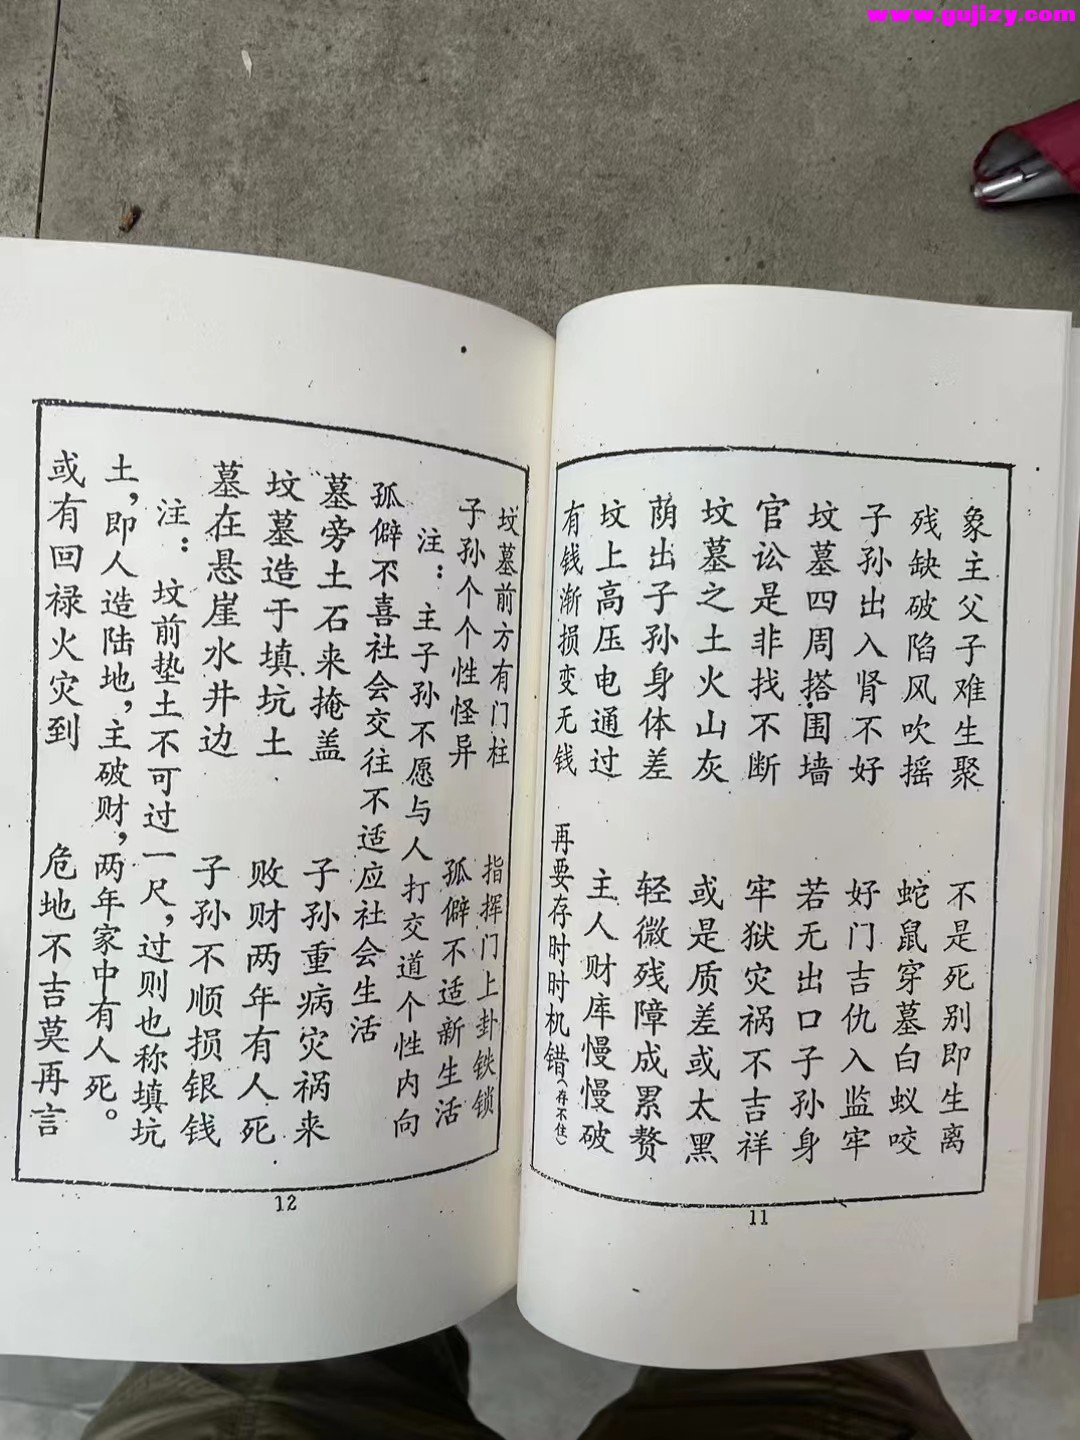 www.gujizy.com
象主父子难生聚 不是死别即生离
残缺破陷风吹摇 蛇鼠穿墓白蚁咬
子孙出入肾不好 好门吉仇入监牢
坟墓四周搭围墙 若无出口子孙身
官讼是非找不断 牢狱灾祸不吉祥
坟墓之土火山灰 或是质差或太黑
荫出子孙身体差 轻微残障成累赘
坟上高压电通过 主人财库慢慢破
有钱渐损变无钱 再要存时时机错(存不住)
11
坟墓前方有门柱 指挥门上卦铁锁
子孙个个性怪异 孤僻不适新生活
注：主子孙不愿与人打交道个性内向
孤僻不喜社会交往不适应社会生活
墓旁土石来掩盖 子孙重病灾祸来
坟墓造于填坑土 败财两年有人死
墓在悬崖水井边 子孙不顺损银钱
注：坟前垫土不可过一尺，过则也称填坑
土，即人造陆地，主破财，两年家中有人死。
或有回禄火灾到 危地不吉莫再言
12